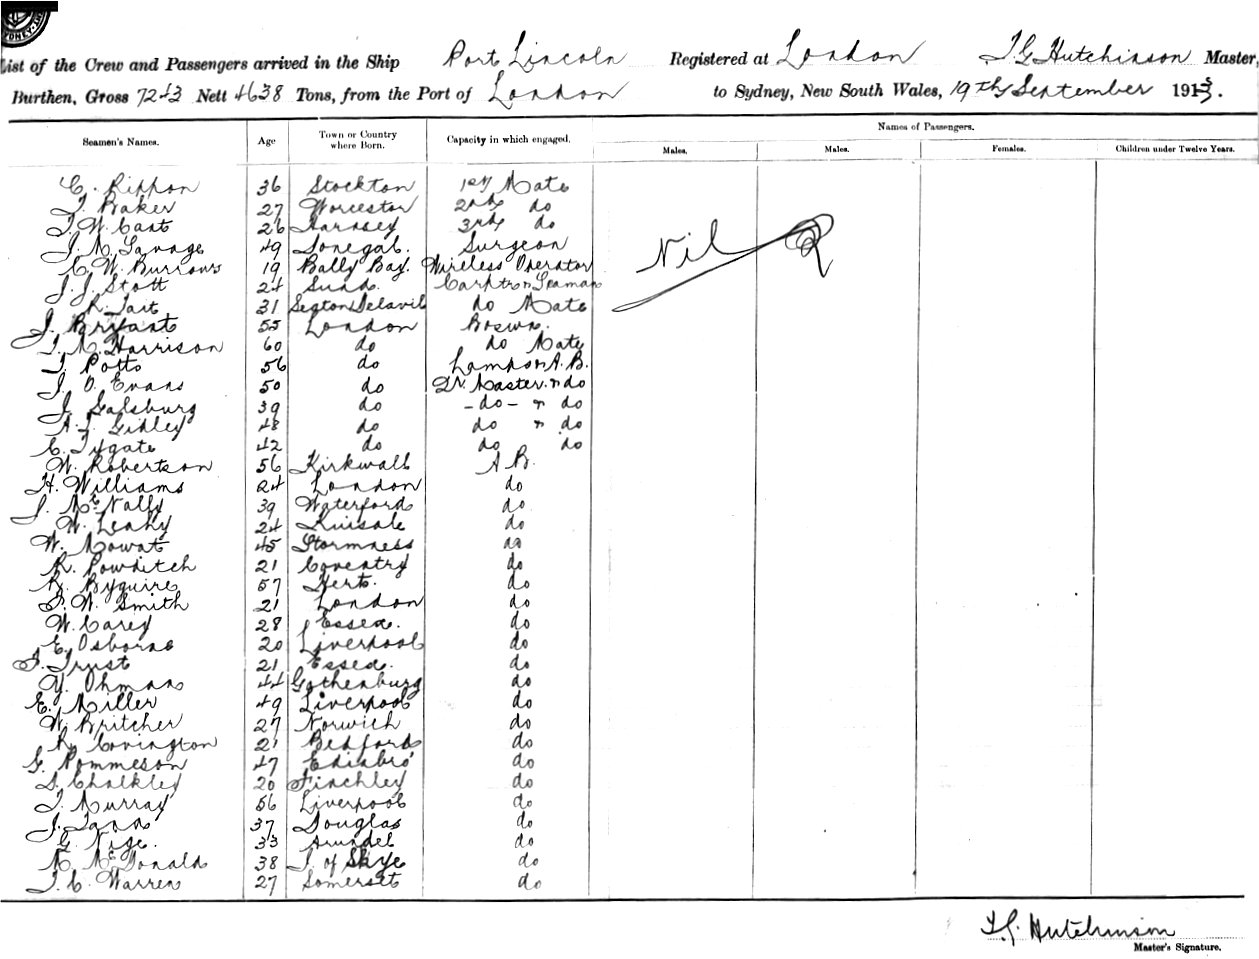 SYDNEY
List of the Crew and Passengers arrived in the Ship Port Lincoln Registered at London T G Hutchinson Master,
Burthen, Gross 7243 Nett 4638 Tons, from the Port of London to Sydney, New South Wales, 19th September 1913.
Names of Passengers.
Seamen's Names. Age Town or Country where Born. Capacity in which engaged. Males. Males. Females. Children under Twelve Years.
C. Rippon 36 Stockton 1st Mate
T. Baker 27 Worcester 2nd do
T. W. Cant 26 Harnsey 3rd do
J. M. Savage 49 Donegal. Surgeon
Nil
C. W. Burrows 19 Bally Bay. Wireless Operator
J. J. Stott 24 Sund. Carptr & Seaman
R. Tait 31 Segton Delavil do Mate
J. Bryant 55 London Bosun.
T. M. Harrison 60 do do Mate
T. Potts 56 do Lamps & A.B.
J. O. Evans 50 do Qr. Master & do
J. Salsburg 39 do - do - & do
A. J. Gidley 48 do do & do
C. Tygate 42 do do do
W. Robertson 56 Kirkwall A B.
H. Williams 24 London do
J. McNally 39 Waterford do
W. Leahy 24 Kinsale do
W. Mowat 45 Stormness do
R. Powditch 21 Coventry do
R. Byguire 57 Herts. do
F. W. Smith 21 London do
W. Carey 28 Essex. do
E. Osborne 20 Liverpool do
F. Trust 21 Essex. do
Y. Ohman 44 Gothenburg do
E. Miller 49 Liverpool do
W. Britcher 27 Norwich do
R. Covington 21 Bedford do
G. Pommeson 47 Edinbro' do
S. Chalkley 20 Finchley do
T. Murray 56 Liverpool do
J. Tann 37 Douglas do
G. Nye. 33 Arundel do
M. McDonald 38 I. of Skye do
T. C. Warren 27 Somerset do
T.G. Hutchinson
Master's Signature.